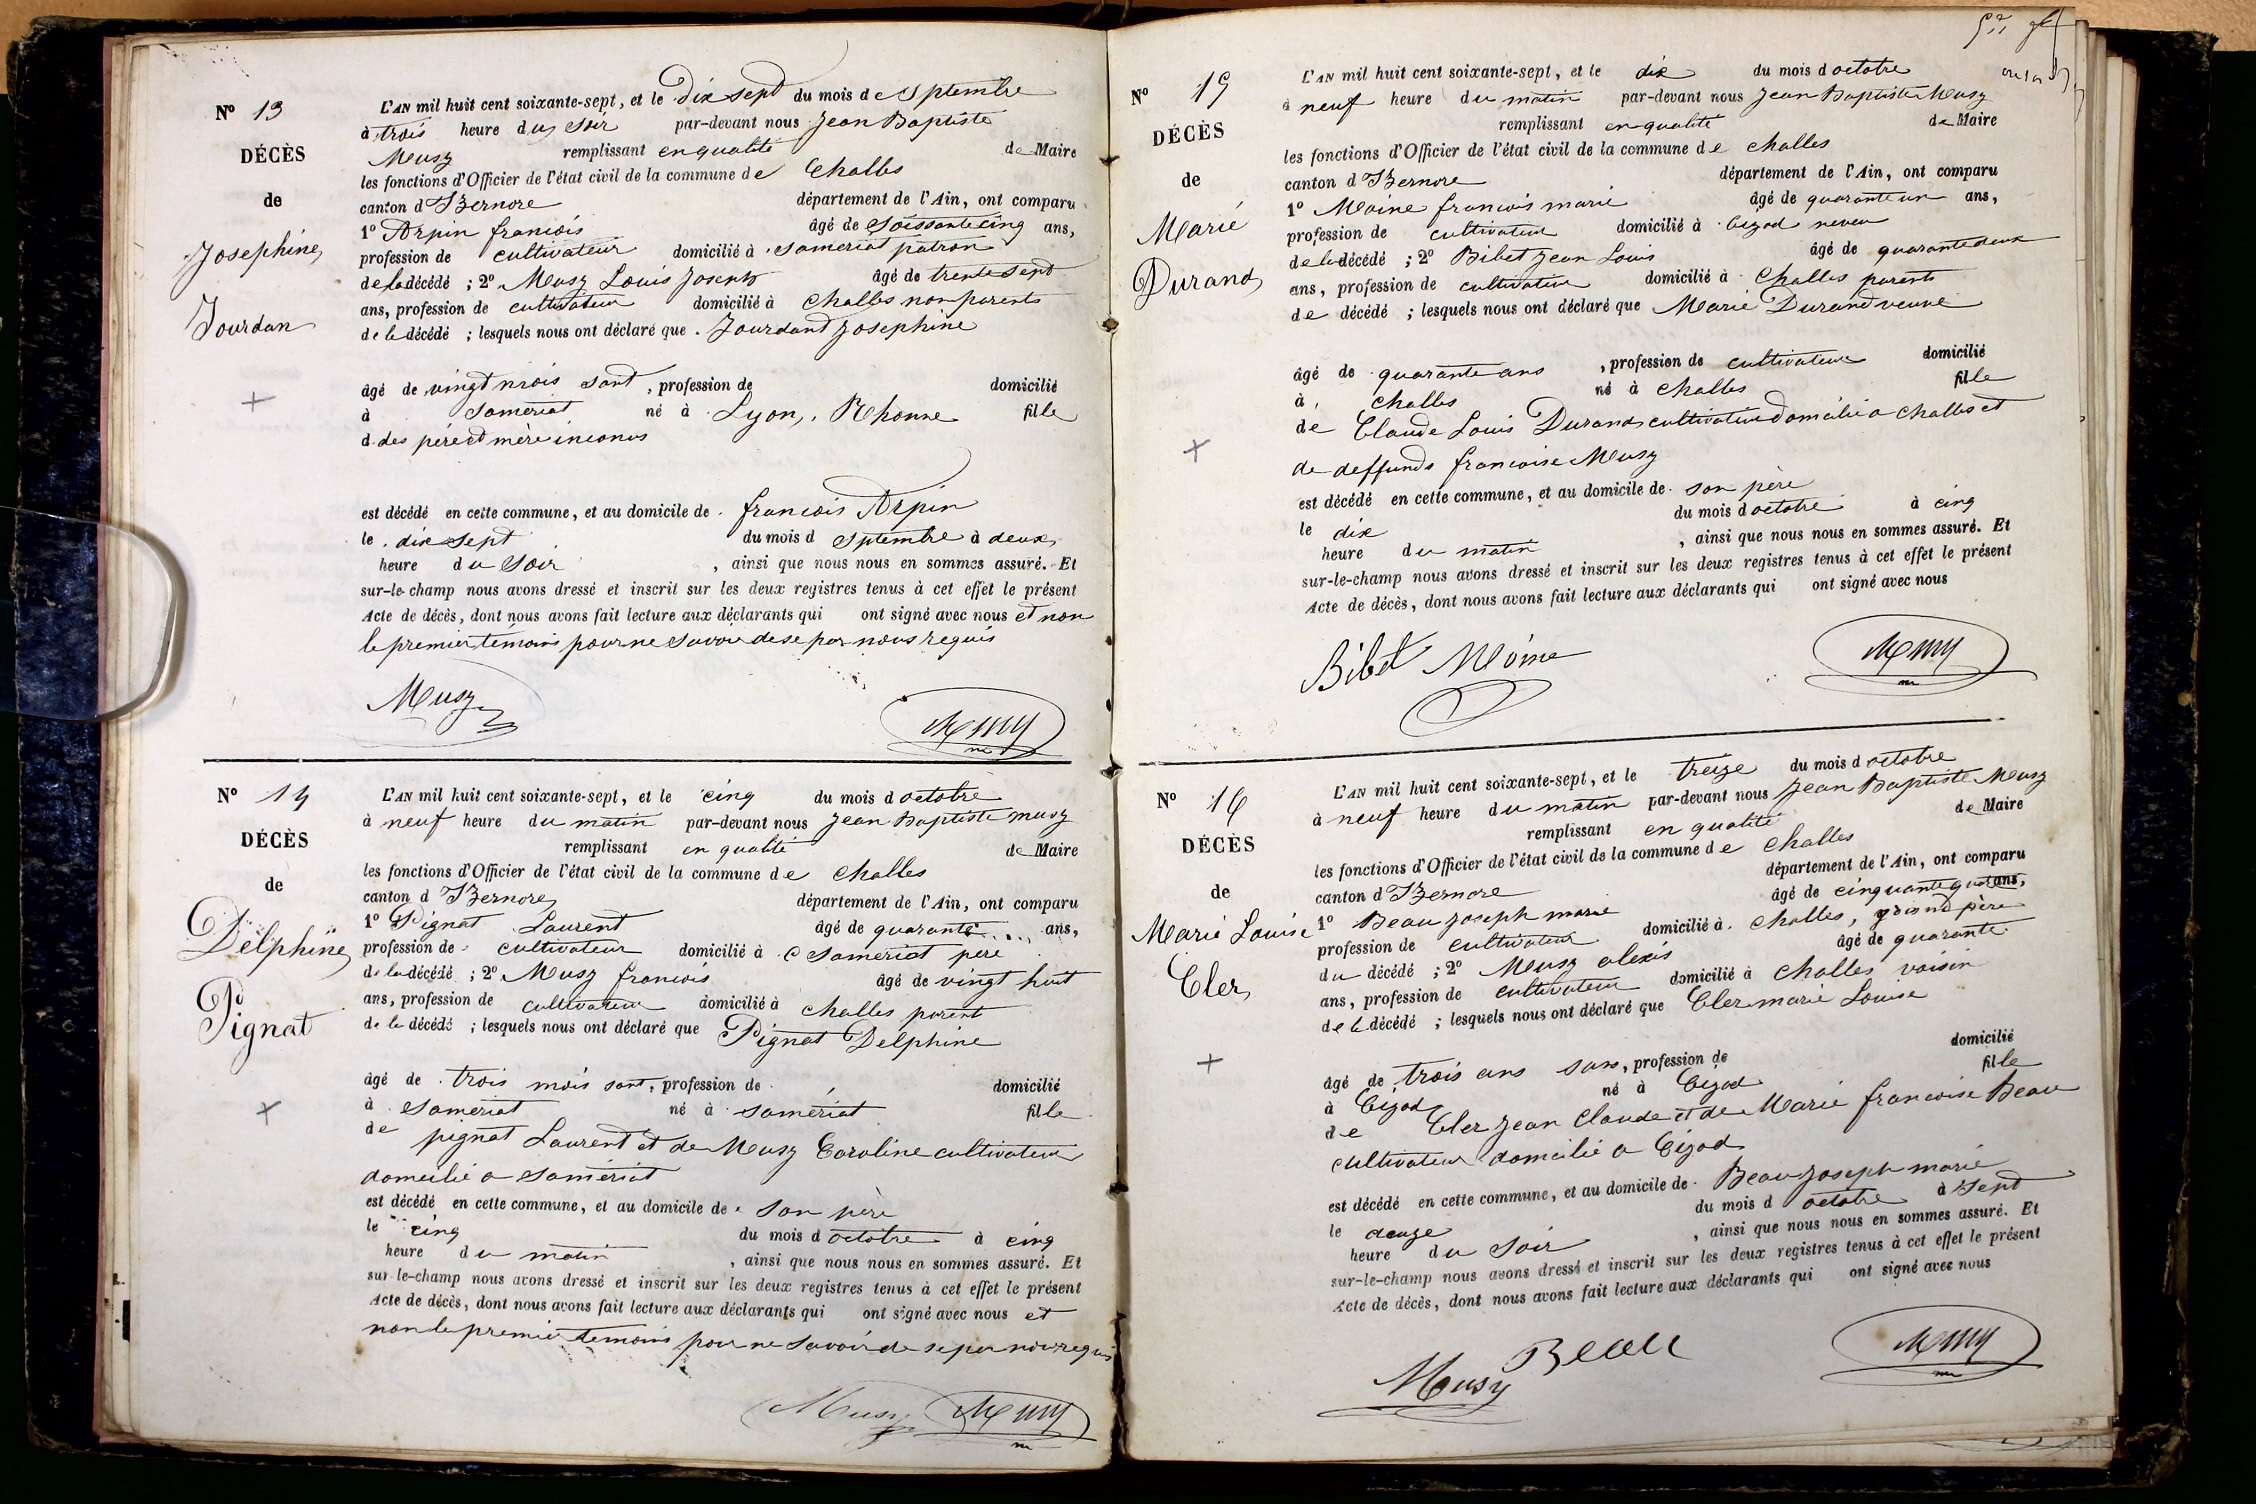 Nº 13
DÉCÈS
de
Josephine
Jourdan
L'AN mil huit cent soixante-sept, et le Dix sept du mois de Septembre
à trois heure du soir par-devant nous Jean Baptiste
Musy remplissant en qualité de Maire
les fonctions d'Officier de l'état civil de la commune de Challes
canton d'Izernore département de l'Ain, ont comparu
1º Arpin francois âgé de Soissante cinq ans,
profession de cultivateur domicilié à Samériat patron
de la décédé ; 2º Musy Louis Joseph âgé de trente sept
ans, profession de cultivateur domicilié à Challes non parents
de la décédé ; lesquels nous ont déclaré que Jourdand Josephine
âgé de vingt mois sant, profession de domicilié
à Samériat né à Lyon, Rhonne fille
d des père et mère inconus
est décédé en cette commune, et au domicile de francois Arpin
le dix sept du mois d Septembre à deux
heure du soir , ainsi que nous nous en sommes assuré. Et
sur-le-champ nous avons dressé et inscrit sur les deux registres tenus à cet effet le présent
Acte de décès, dont nous avons fait lecture aux déclarants qui ont signé avec nous et non
le premier témoins pour ne savoir de se par nous requis
Musy Musy
Nº 14
DÉCÈS
de
Delphine
Pignat
L'AN mil huit cent soixante-sept, et le cinq du mois d octobre
à neuf heure du matin par-devant nous Jean Baptiste Musy
remplissant en qualité de Maire
les fonctions d'Officier de l'état civil de la commune de Challes
canton d'Izernore département de l'Ain, ont comparu
1º Pignat Laurent âgé de quarante ans,
profession de cultivateur domicilié à Samériat père
de la décédé ; 2º Musy francois âgé de vingt huit
ans, profession de cultivateur domicilié à Challes parent
de la décédé ; lesquels nous ont déclaré que Pignat Delphine
âgé de trois mois sant, profession de domicilié
à Samériat né à Samériat fille
de pignat Laurent et de Musy Caroline cultivateur
domicilié a Samériat
est décédé en cette commune, et au domicile de son père
le cinq du mois d octobre à cinq
heure du matin , ainsi que nous nous en sommes assuré. Et
sur-le-champ nous avons dressé et inscrit sur les deux registres tenus à cet effet le présent
Acte de décès, dont nous avons fait lecture aux déclarants qui ont signé avec nous et
non le premier témoins pour ne savoir de se par nous requis
Musy Musy
Nº 15
DÉCÈS
de
Marie
Durand
L'AN mil huit cent soixante-sept, et le dix du mois d octobre
à neuf heure du matin par-devant nous Jean Baptiste Musy
remplissant en qualité de Maire
les fonctions d'Officier de l'état civil de la commune de Challes
canton d'Izernore département de l'Ain, ont comparu
1º Moine francois marie âgé de quarante un ans,
profession de cultivateur domicilié à Cizod neveu
de la décédé ; 2º Bibet Jean Louis âgé de quarante deux
ans, profession de cultivateur domicilié à Challes parents
de décédé ; lesquels nous ont déclaré que Marie Durand veuve
âgé de quarante ans , profession de cultivateur domicilié
à Challes né à Challes fille
de Claude Louis Durand cultivateur domicilié a Challes et
de deffunds francoise Musy
est décédé en cette commune, et au domicile de son père
le dix du mois d octobre à cinq
heure du matin , ainsi que nous nous en sommes assuré. Et
sur-le-champ nous avons dressé et inscrit sur les deux registres tenus à cet effet le présent
Acte de décès, dont nous avons fait lecture aux déclarants qui ont signé avec nous
Bibet Moine Musy
Nº 16
DÉCÈS
de
Marie Louise
Cler
L'AN mil huit cent soixante-sept, et le treize du mois d octobre
à neuf heure du matin par-devant nous Jean Baptiste Musy
remplissant en qualité de Maire
les fonctions d'Officier de l'état civil de la commune de Challes
canton d'Izernore département de l'Ain, ont comparu
1º Beau Joseph marie âgé de cinquante quat ans,
profession de cultivateur domicilié à Challes, grand père
du décédé ; 2º Musy alexis âgé de quarante
ans, profession de cultivateur domicilié à Challes voisin
de la décédé ; lesquels nous ont déclaré que Cler marie Louise
âgé de trois ans sans, profession de domicilié
à Cizod né à Cizod fille
de Cler Jean Claude et de Marie francoise Beau
cultivateur domicilié a Cizod
est décédé en cette commune, et au domicile de Beau Joseph marie
le douze du mois d octobre à Sept
heure du soir , ainsi que nous nous en sommes assuré. Et
sur-le-champ nous avons dressé et inscrit sur les deux registres tenus à cet effet le présent
Acte de décès, dont nous avons fait lecture aux déclarants qui ont signé avec nous
Musy Beau Musy